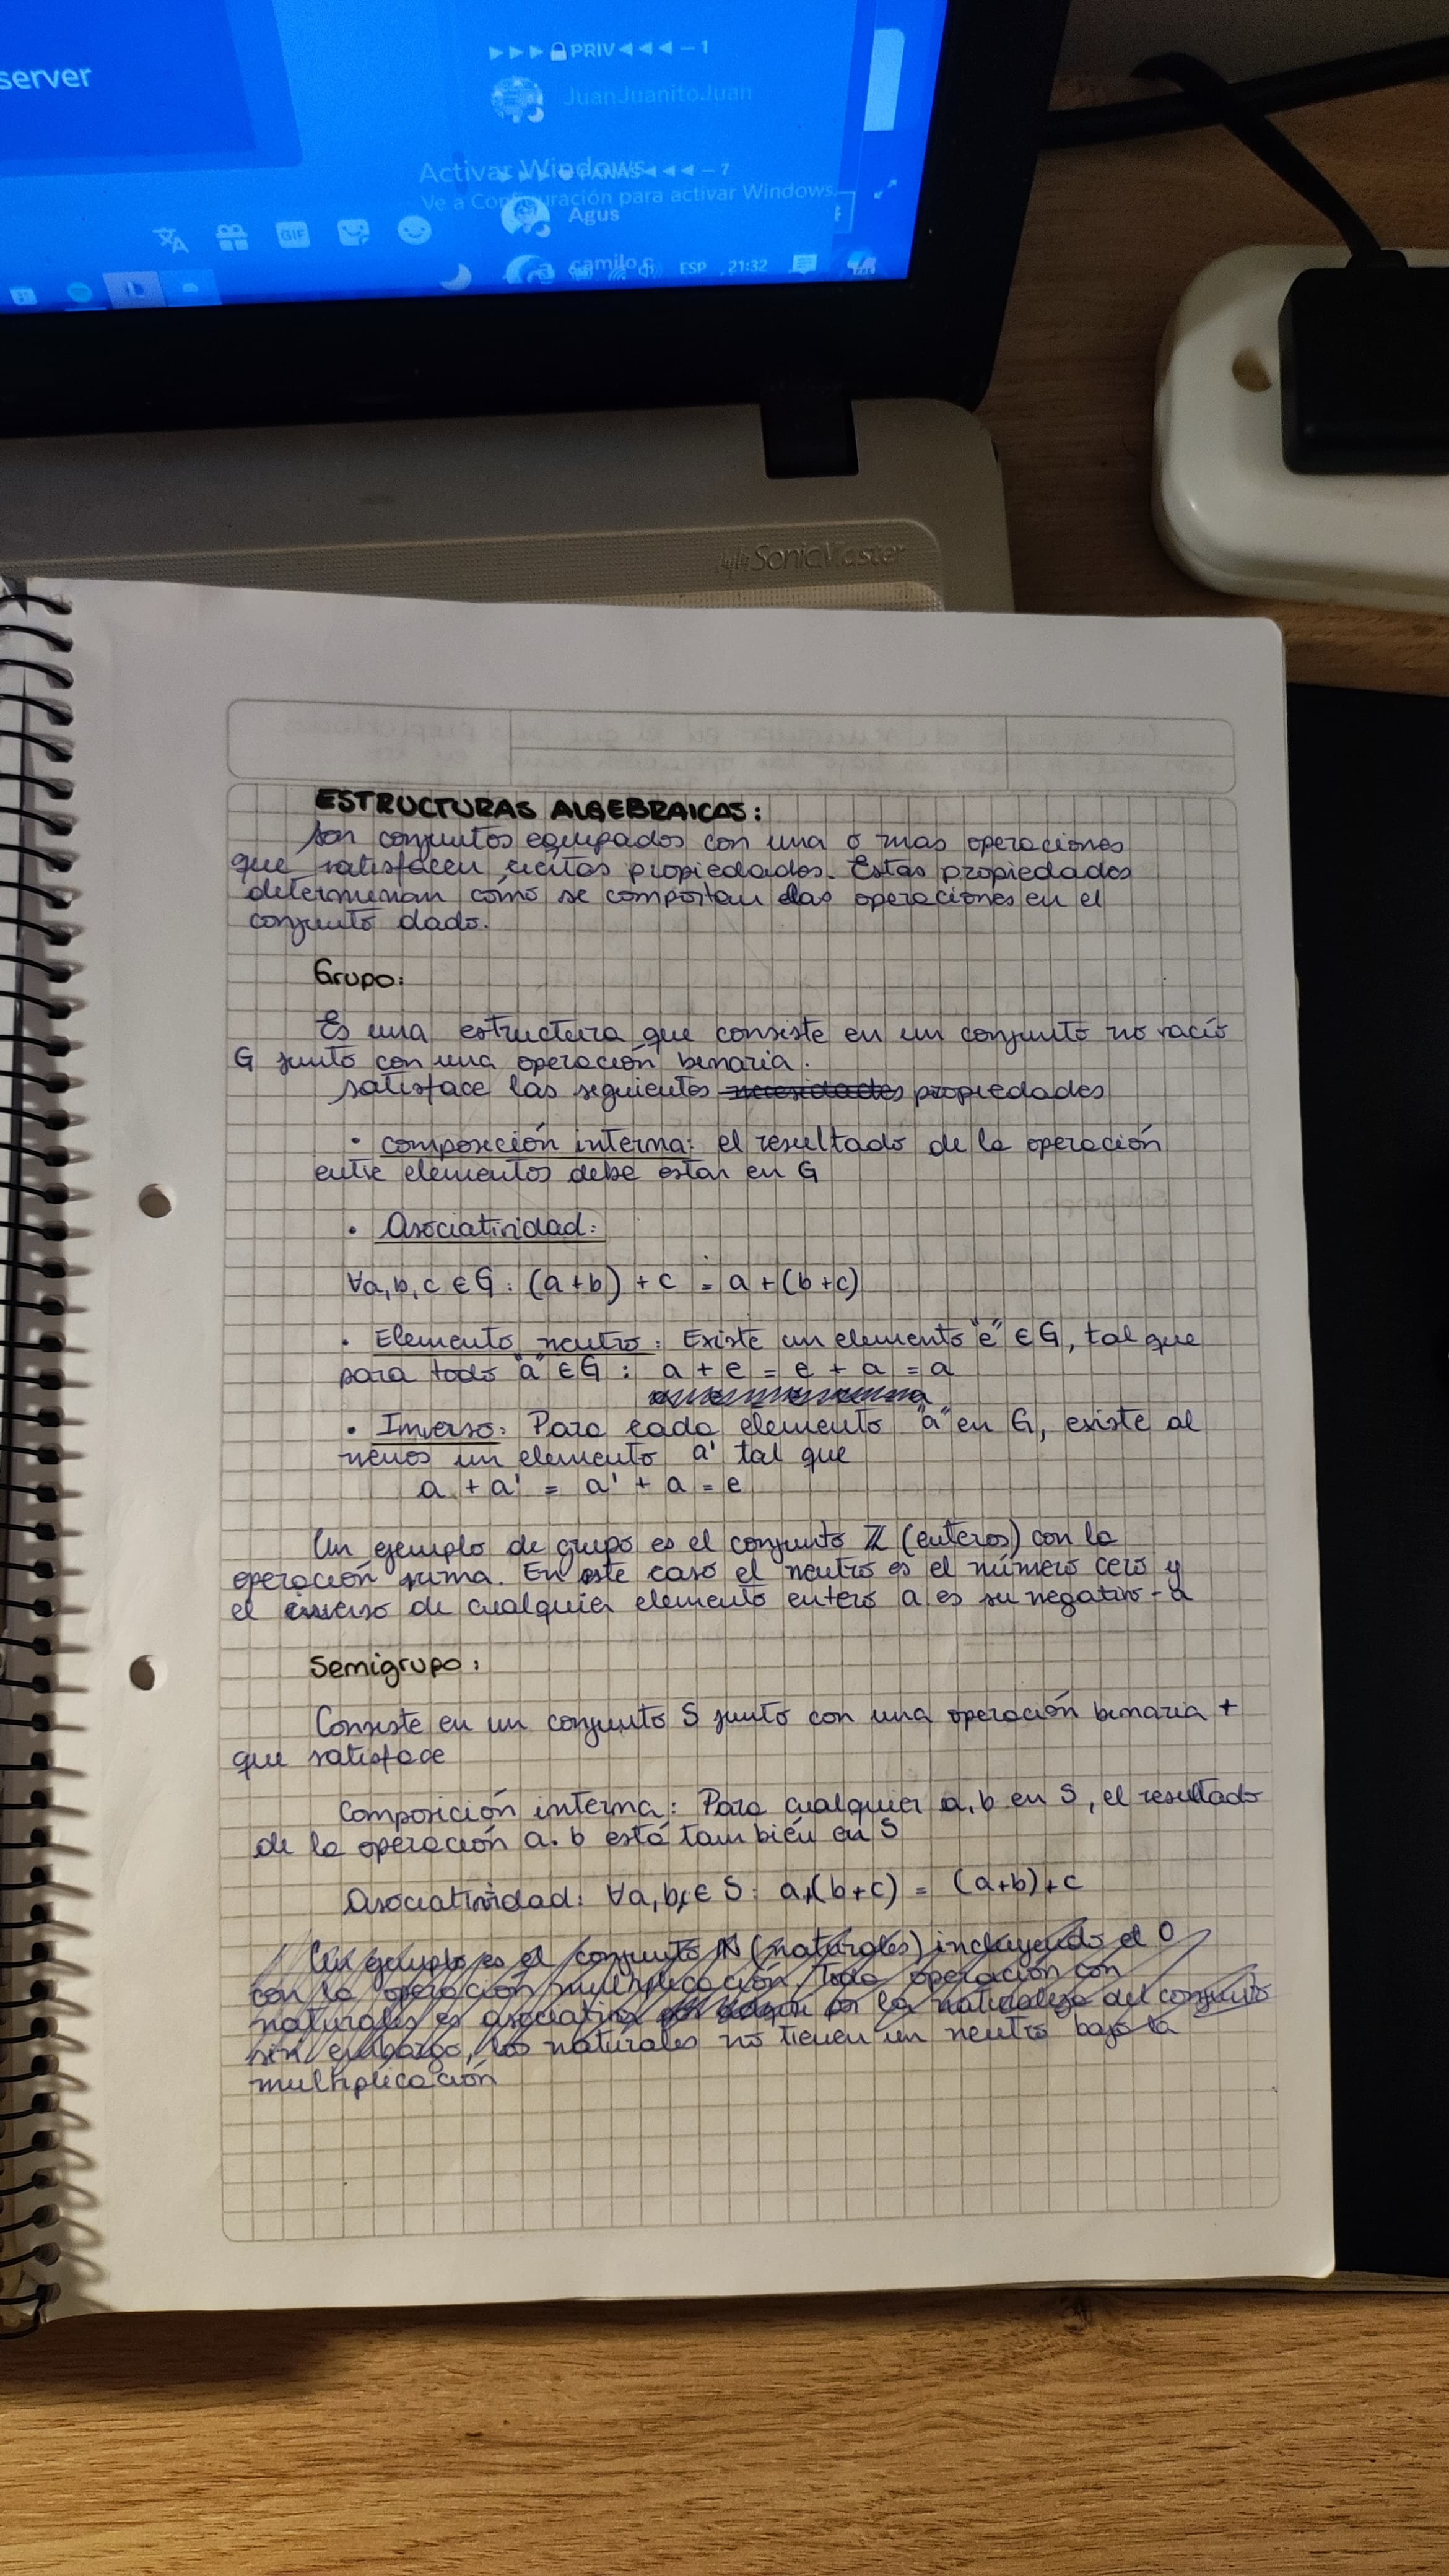 server
▶▶▶🔒PRIV◀◀◀ – 1
JuanJuanitoJuan
Activar Windows
PANAS◀◀◀ – 7
Ve a Configuración para activar Windows.
Agus
GIF
camilo c
ESP 21:32
SonicMaster
ESTRUCTURAS ALGEBRAICAS:
Son conjuntos equipados con una o mas operaciones
que satisfacen ciertas propiedades. Estas propiedades
determinan cómo se comportan las operaciones en el
conjunto dado.
Grupo:
Es una estructura que consiste en un conjunto no vacío
G junto con una operación binaria.
satisface las siguientes necesidades propiedades
• composición interna: el resultado de la operación
entre elementos debe estar en G
• Asociatividad:
∀a,b,c ∈ G : (a+b) + c = a + (b+c)
• Elemento neutro: Existe un elemento "e" ∈ G, tal que
para todo "a" ∈ G : a + e = e + a = a
• Inverso: Para cada elemento "a" en G, existe al
menos un elemento a' tal que
a + a' = a' + a = e
Un ejemplo de grupo es el conjunto ℤ (enteros) con la
operación suma. En este caso el neutro es el número cero y
el inverso de cualquier elemento entero a es su negativo -a
Semigrupo:
Consiste en un conjunto S junto con una operación binaria +
que satisface
Composición interna: Para cualquier a,b en S, el resultado
de la operación a.b está también en S
Asociatividad: ∀a,b,c ∈ S: a+(b+c) = (a+b)+c
Un ejemplo es el conjunto ℕ (naturales) incluyendo el 0
con la operación multiplicación. Toda operación con
naturales es asociativa por la naturaleza del conjunto
sin embargo, los naturales no tienen un neutro bajo la
multiplicación